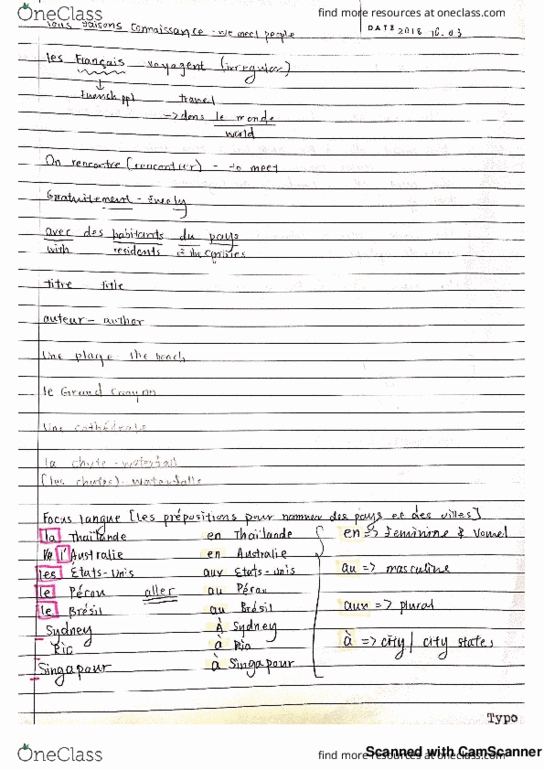 OneClass find more resources at oneclass.com
Nous faisons connaissance - we meet people DATE 2018 16.03
les Français voyagent (irregular)
↓
french ppl travel
→ dans le monde
world
On rencontre (rencontrer) - to meet
Gratuitement - freely
avec des habitants du pays
with residents of the
titre title
auteur - author
Une plage the beach
le Grand Canyon
Une cathédrale
la chute - waterfall
(les chutes) - waterfalls
Focus langue [les prépositions pour nommer des pays et des villes]
la Thaïlande en Thaïlande en => feminine & vowel
l'Australie en Australie
les États-Unis aux Etats-Unis au => masculine
le Pérou aller au Pérou
le Brésil au Brésil aux => plural
Sydney À Sydney
Rio à Rio à => city / city states
Singapour à Singapour
Typo
OneClass find more resources at oneclass.com
Scanned with CamScanner